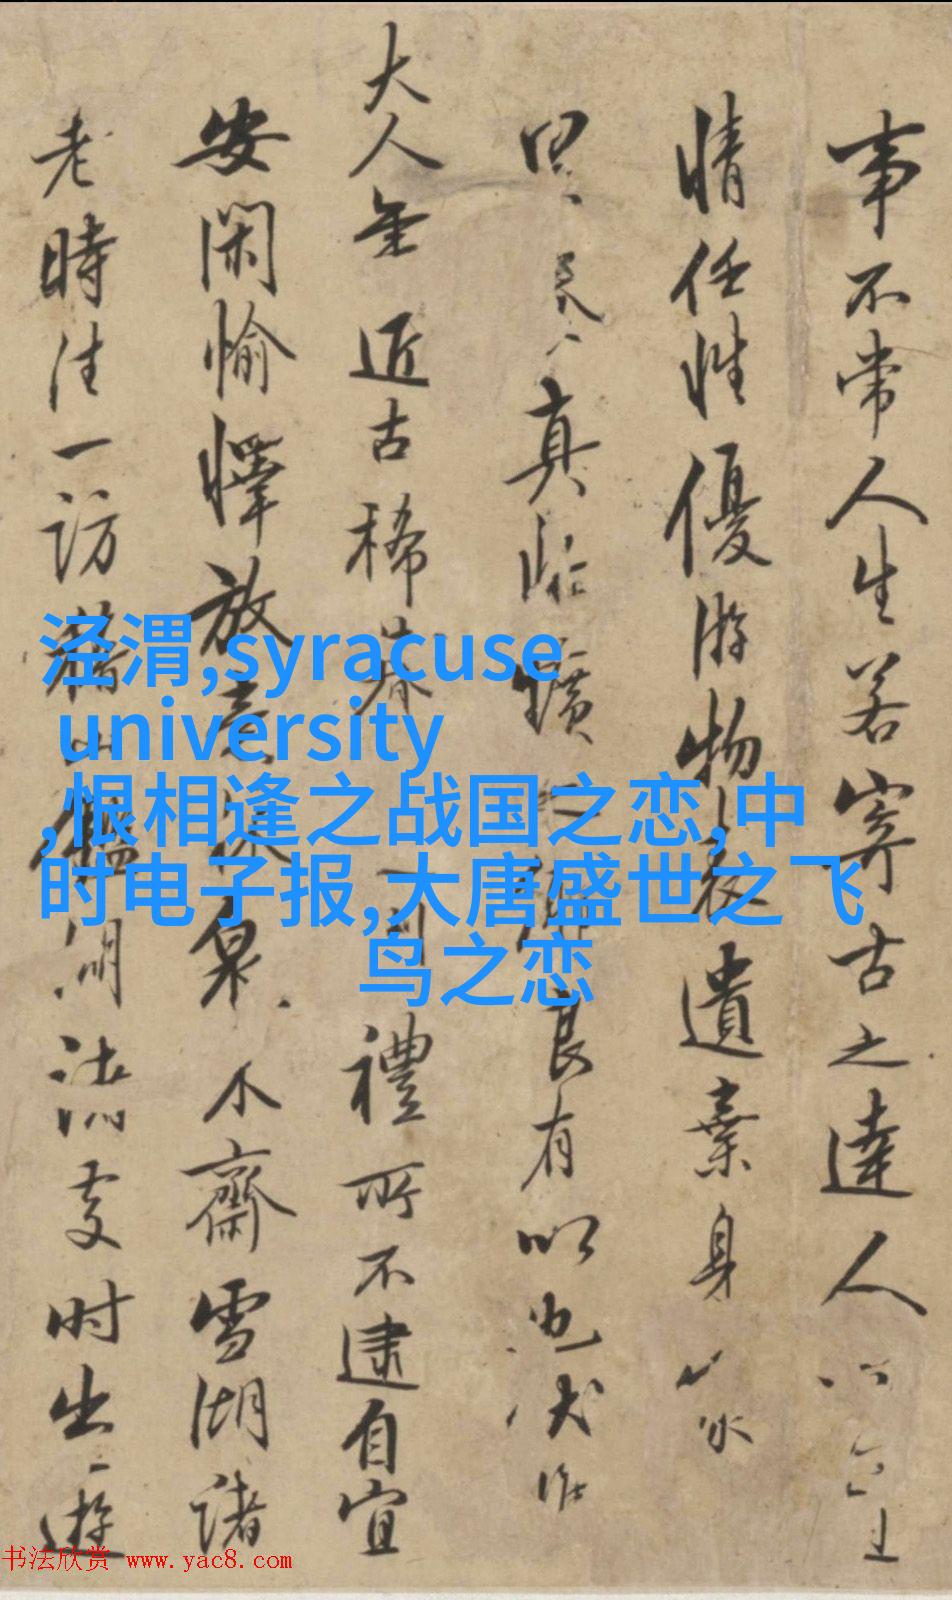 事不常人生若寄古之達人
情任性優游物表遺棄身
真臨 良有以也伏惟
大人年近古稀 禮所不逮自宜
安閑愉懌放意林泉木齋雪湖諸
老時往一訪 鑑湖 處时出一遊
泾渭,syracuse
university
,恨相逢之战国之恋,中
时电子报,大唐盛世之飞
鸟之恋
书法欣赏 www.yac8.com